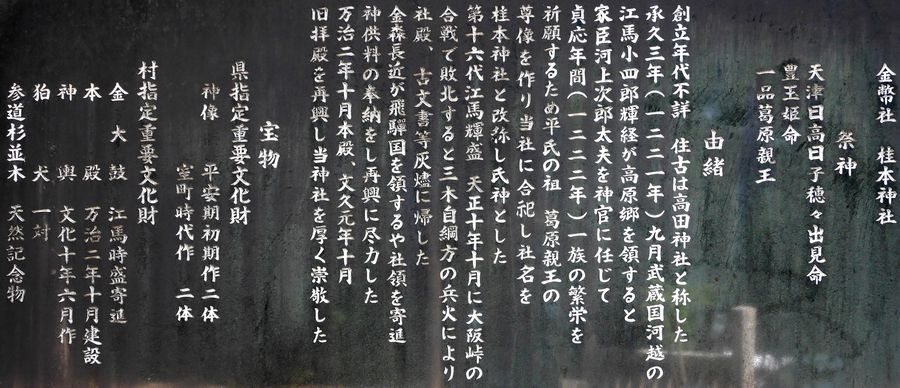 金幣社　桂本神社
祭神
天津日高日子穂々出見命
豊玉姫命
一品葛原親王
由緒
創立年代不詳　往古は高田神社と称した
承久三年(一二二一年)九月武蔵国河越の
江馬小四郎輝経が高原郷を領すると
家臣河上次郎太夫を神官に任じて
貞応年間(一二二二年)一族の繁栄を
祈願するため平氏の祖　葛原親王の
尊像を作り当社に合祀し社名を
桂本神社と改称し氏神とした
第十六代江馬輝盛　天正十年十月に大阪峠の
合戦で敗北すると三木自綱方の兵火により
社殿、古文書等灰燼に帰した
金森長近が飛騨国を領するや社領を寄進
神供料の奉納をし再興に尽力した
万治二年十月本殿、文久元年十月
旧拝殿を再興し当神社を厚く崇敬した
宝物
県指定重要文化財
神像　平安期初期作二体
室町時代作　二体
村指定重要文化財
金大鼓　江馬時盛寄進
本殿　万治二年十月建設
神輿　文化十年六月作
狛犬　一対
参道杉並木　天然記念物